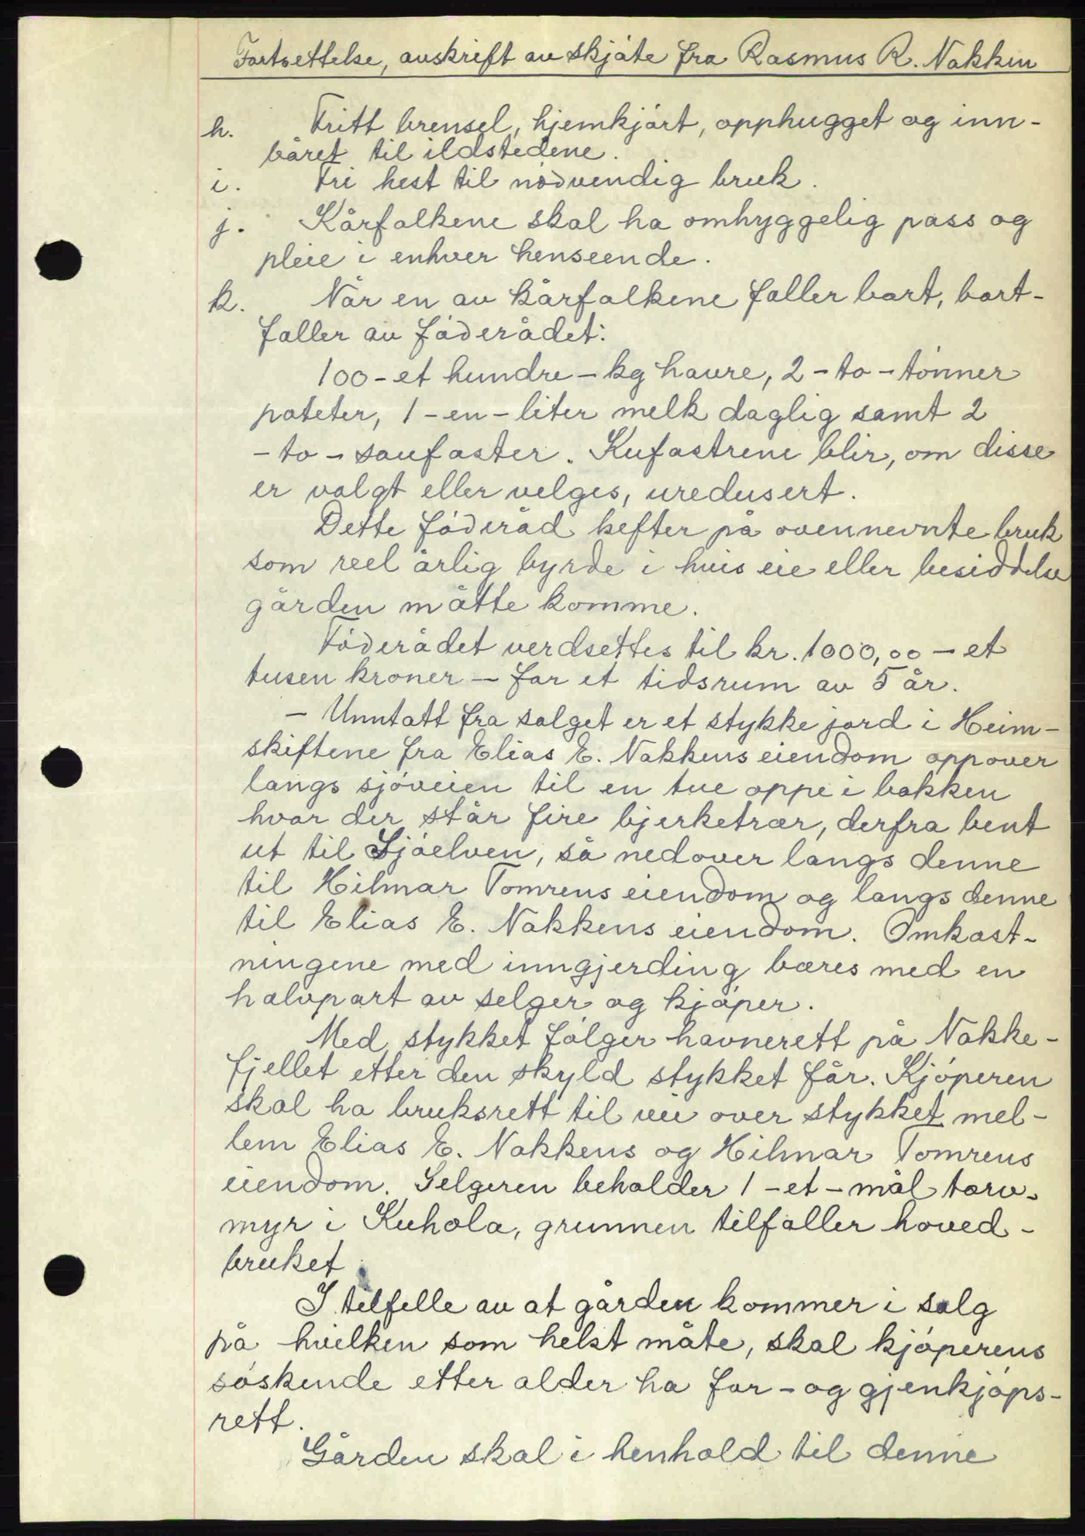 Fortsettelse, avskrift av skjøte fra Rasmus R. Nakken
h. Fritt brensel, hjemkjørt, opphugget og inn-
båret til ildstedene.
i. Fri hest til nødvendig bruk.
j. Kårfolkene skal ha omhyggelig pass og
pleie i enhver henseende.
k. Når en av kårfolkene faller bort, bort-
faller av føderådet:
100 - et hundre - kg havre, 2 - to - tønner
poteter, 1 - en - liter melk daglig samt 2
- to - saufoster. Kufostrene blir, om disse
er valgt eller velges, uredusert.
Dette føderåd hefter på ovennevnte bruk
som reel årlig byrde i hvis eie eller besiddelse
gården måtte komme.
Føderådet verdsettes til kr. 1000,00 - et
tusen kroner - for et tidsrum av 5 år.
- Unntatt fra salget er et stykke jord i Heim-
skiftene fra Elias E. Nakkens eiendom oppover
langs sjøveien til en tue oppe i bakken
hvor der står fire bjerketrær, derfra bent
ut til Sjøelven, så nedover langs denne
til Hilmar Tomrens eiendom og langs denne
til Elias E. Nakkens eiendom. Omkost-
ningene med inngjerding bæres med en
halvpart av selger og kjøper.
Med stykket følger havnerett på Nakke-
fjellet etter den skyld stykket får. Kjøperen
skal ha bruksrett til vei over stykket mel-
lem Elias E. Nakkens og Hilmar Tomrens
eiendom. Selgeren beholder 1 - et - mål torv-
myr i Kuhola, grunnen tilfaller hoved-
bruket.
I tilfelle av at gården kommer i salg
på hvilken som helst måte, skal kjøperens
søskende etter alder ha for- og gjenkjøps-
rett.
Gården skal i henhold til denne